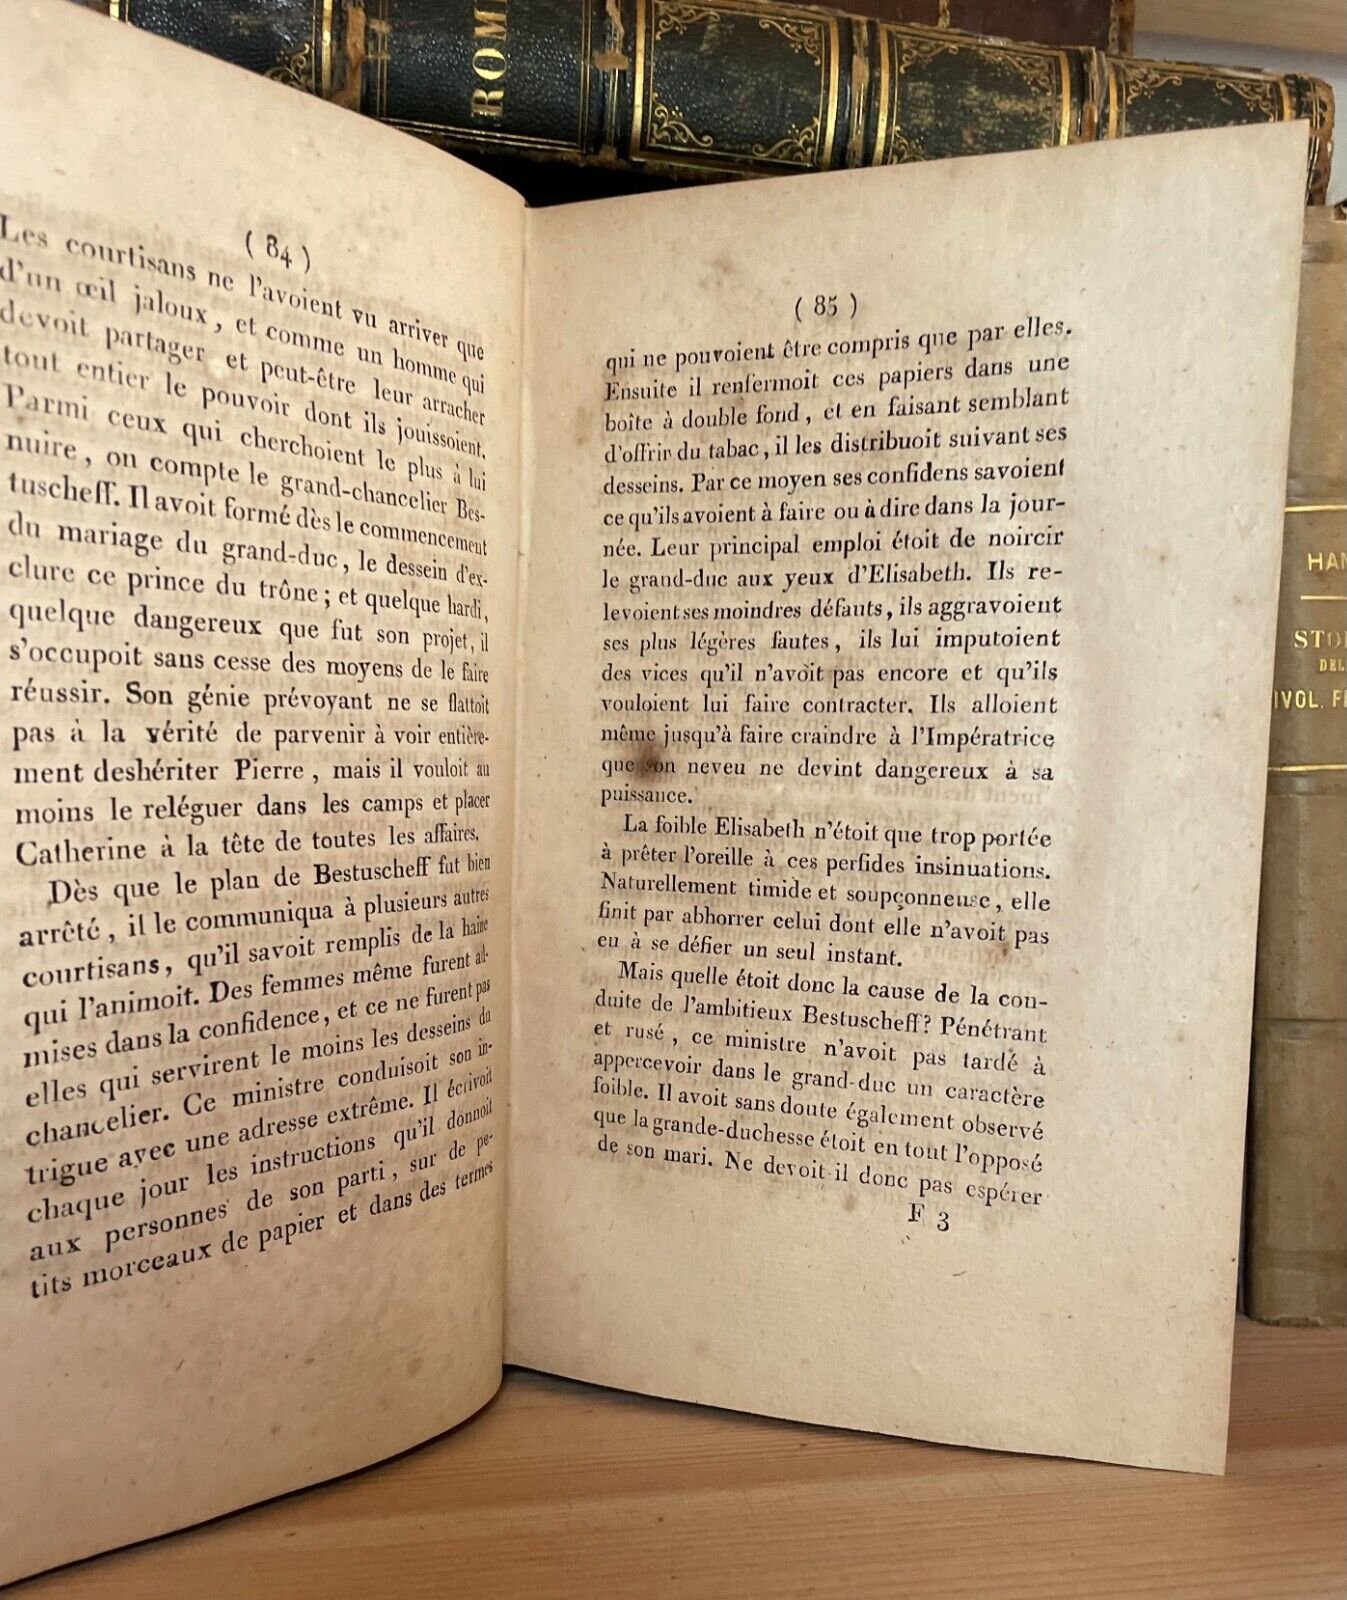 ROM
HAN
STO
DEL
IVOL. F
( 84 )
Les courtisans ne l'avoient vu arriver que
d'un œil jaloux, et comme un homme qui
devoit partager et peut-être leur arracher
tout entier le pouvoir dont ils jouissoient.
Parmi ceux qui cherchoient le plus à lui
nuire, on compte le grand-chancelier Bes-
tuscheff. Il avoit formé dès le commencement
du mariage du grand-duc, le dessein d'ex-
clure ce prince du trône; et quelque hardi,
quelque dangereux que fut son projet, il
s'occupoit sans cesse des moyens de le faire
réussir. Son génie prévoyant ne se flattoit
pas à la vérité de parvenir à voir entière-
ment deshériter Pierre, mais il vouloit au
moins le reléguer dans les camps et placer
Catherine à la tête de toutes les affaires.
Dès que le plan de Bestuscheff fut bien
arrêté, il le communiqua à plusieurs autres
courtisans, qu'il savoit remplis de la haine
qui l'animoit. Des femmes même furent ad-
mises dans la confidence, et ce ne furent pas
elles qui servirent le moins les desseins du
chancelier. Ce ministre conduisoit son in-
trigue avec une adresse extrême. Il écrivoit
chaque jour les instructions qu'il donnoit
aux personnes de son parti, sur de pe-
tits morceaux de papier et dans des termes
( 85 )
qui ne pouvoient être compris que par elles.
Ensuite il renfermoit ces papiers dans une
boîte à double fond, et en faisant semblant
d'offrir du tabac, il les distribuoit suivant ses
desseins. Par ce moyen ses confidens savoient
ce qu'ils avoient à faire ou à dire dans la jour-
née. Leur principal emploi étoit de noircir
le grand-duc aux yeux d'Elisabeth. Ils re-
levoient ses moindres défauts, ils aggravoient
ses plus légères fautes, ils lui imputoient
des vices qu'il n'avoit pas encore et qu'ils
vouloient lui faire contracter. Ils alloient
même jusqu'à faire craindre à l'Impératrice
que son neveu ne devint dangereux à sa
puissance.
La foible Elisabeth n'étoit que trop portée
à prêter l'oreille à ces perfides insinuations.
Naturellement timide et soupçonneuse, elle
finit par abhorrer celui dont elle n'avoit pas
eu à se défier un seul instant.
Mais quelle étoit donc la cause de la con-
duite de l'ambitieux Bestuscheff? Pénétrant
et rusé, ce ministre n'avoit pas tardé à
appercevoir dans le grand-duc un caractère
foible. Il avoit sans doute également observé
que la grande-duchesse étoit en tout l'opposé
de son mari. Ne devoit-il donc pas espérer
F 3